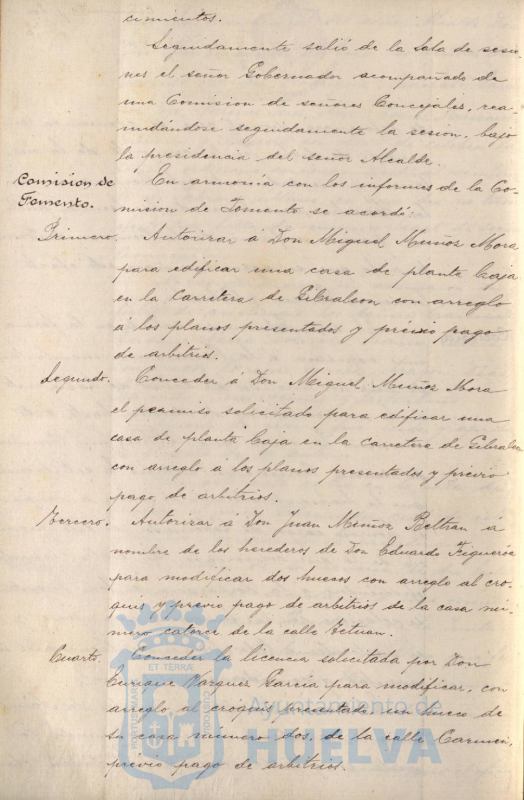 cimientos.
Seguidamente salió de la Sala de sesio-
nes el señor Gobernador acompañado de
una Comision de señores Concejales, rea-
nudándose seguidamente la sesion, bajo
la presidencia del señor Alcalde.
Comision de
Fomento.
En armonía con los informes de la Co-
mision de Fomento se acordó:
Primero. Autorizar á Don Miguel Muñoz Mora
para edificar una casa de planta baja
en la Carretera de Gibraleon con arreglo
á los planos presentados y previo pago
de arbitrios.
Segundo. Conceder á Don Miguel Muñoz Mora
el permiso solicitado para edificar una
casa de planta baja en la carretera de Gibraleon
con arreglo á los planos presentados y previo
pago de arbitrios.
Tercero. Autorizar á Don Juan Muñoz Beltran á
nombre de los herederos de Don Eduardo Figueroa
para modificar dos huecos con arreglo al cro-
quis y previo pago de arbitrios de la casa nú-
mero catorce de la calle Tetuan.
Cuarto. Conceder la licencia solicitada por Don
Enrique Vazquez García para modificar, con
arreglo al croquis presentado, un hueco de
su casa número dos, de la calle Carmen,
previo pago de arbitrios.
PORTUS MARIS
ET TERRÆ
CUSTODIA
Ayuntamiento de
HUELVA